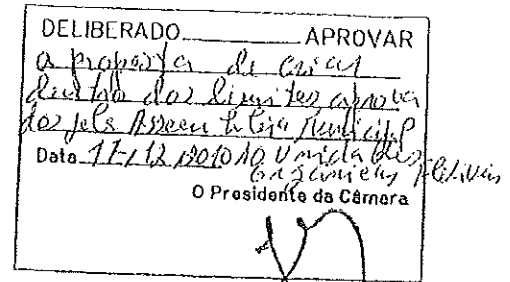 DELIBERADO APROVAR
a proposta de criar
dentro dos limites aprova
dos pela Assembleia Municipal
Data 17/12/2010 10 Unidades
orgânicas flexíveis
O Presidente da Câmara